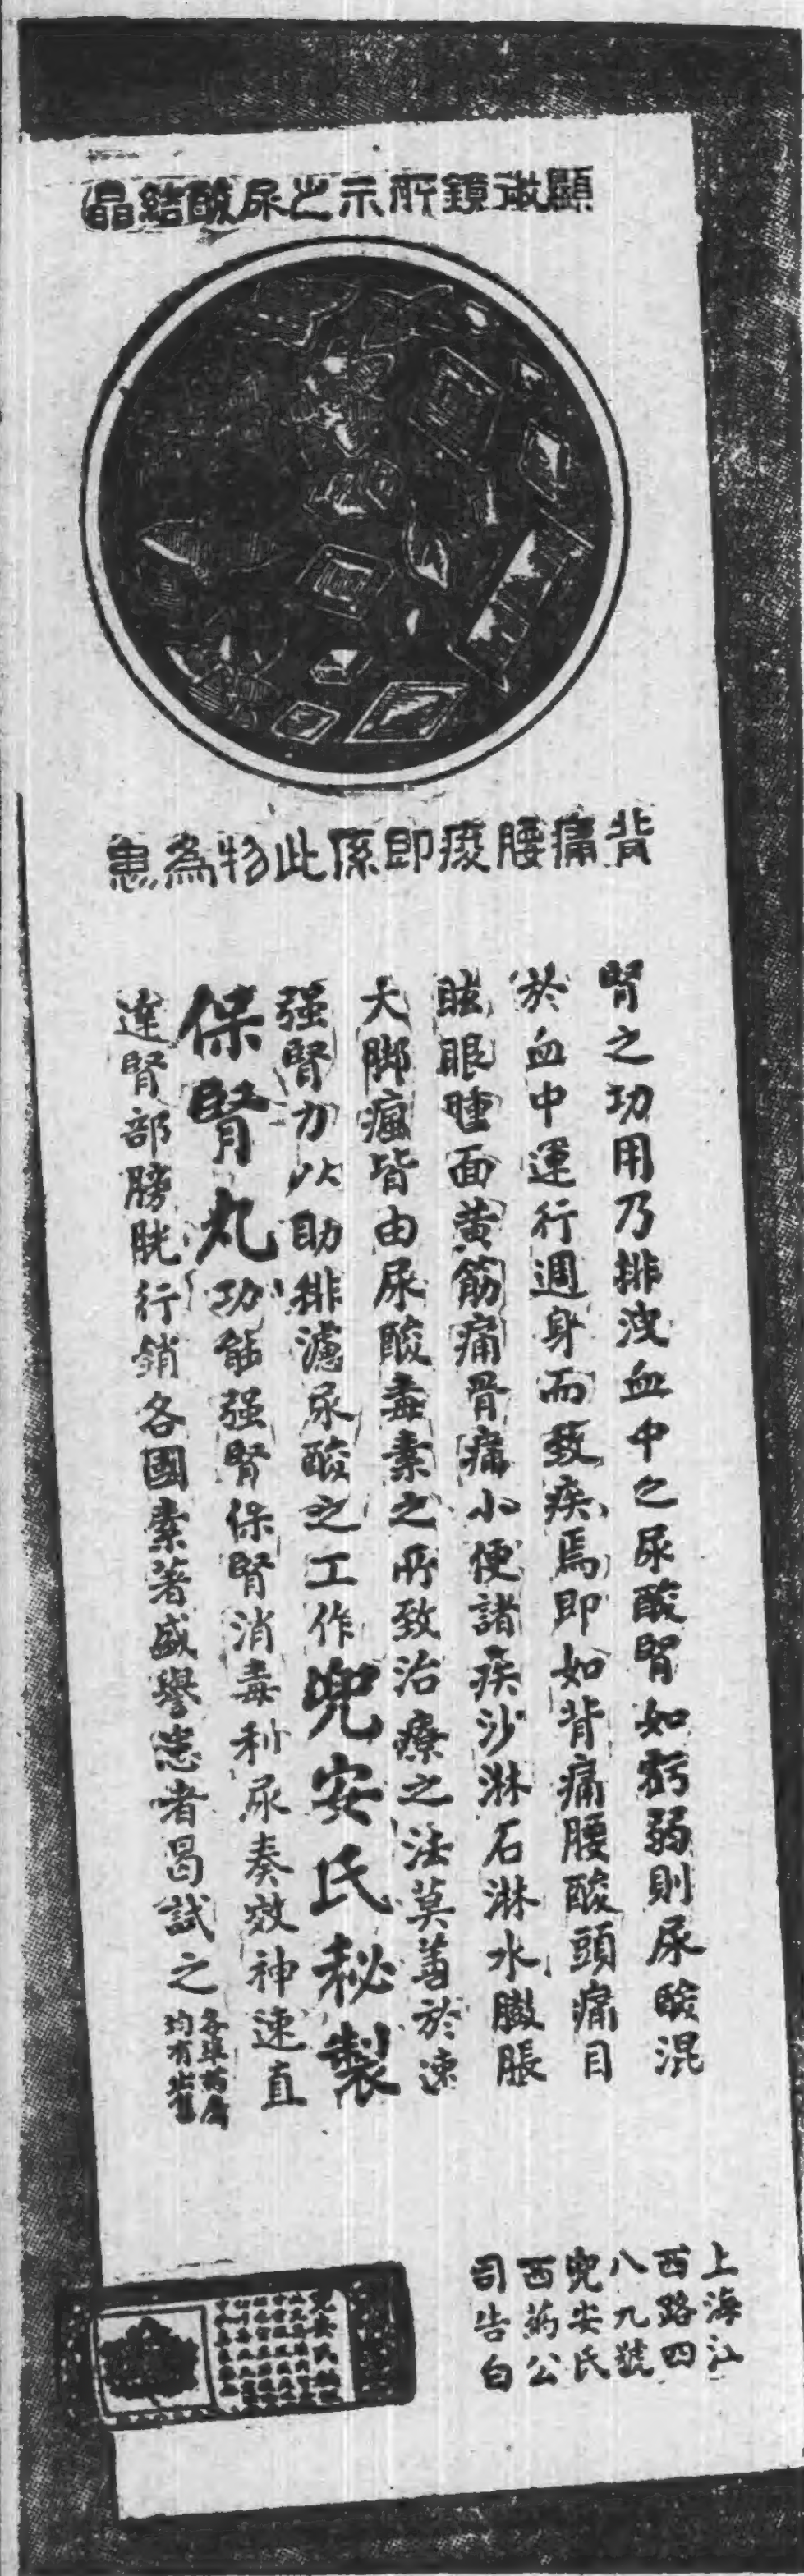 顯微鏡所示之尿酸結晶
背痛腰痠即係此物為患
腎之功用乃排洩血中之尿酸腎如虧弱則尿酸混
於血中運行週身而致疾焉即如背痛腰酸頭痛目
眩眼腫面黄筋痛骨痛小便諸疾沙淋石淋水臌脹
大脚瘋皆由尿酸毒素之所致治療之法莫善於速
强腎力以助排濾尿酸之工作兜安氏秘製
保腎丸功能强腎保腎消毒利尿奏效神速直
達腎部膀胱行銷各國素著盛譽患者曷試之
各埠药房
均有出售
上海江
西路四
八九號
兜安氏
西葯公
司告白